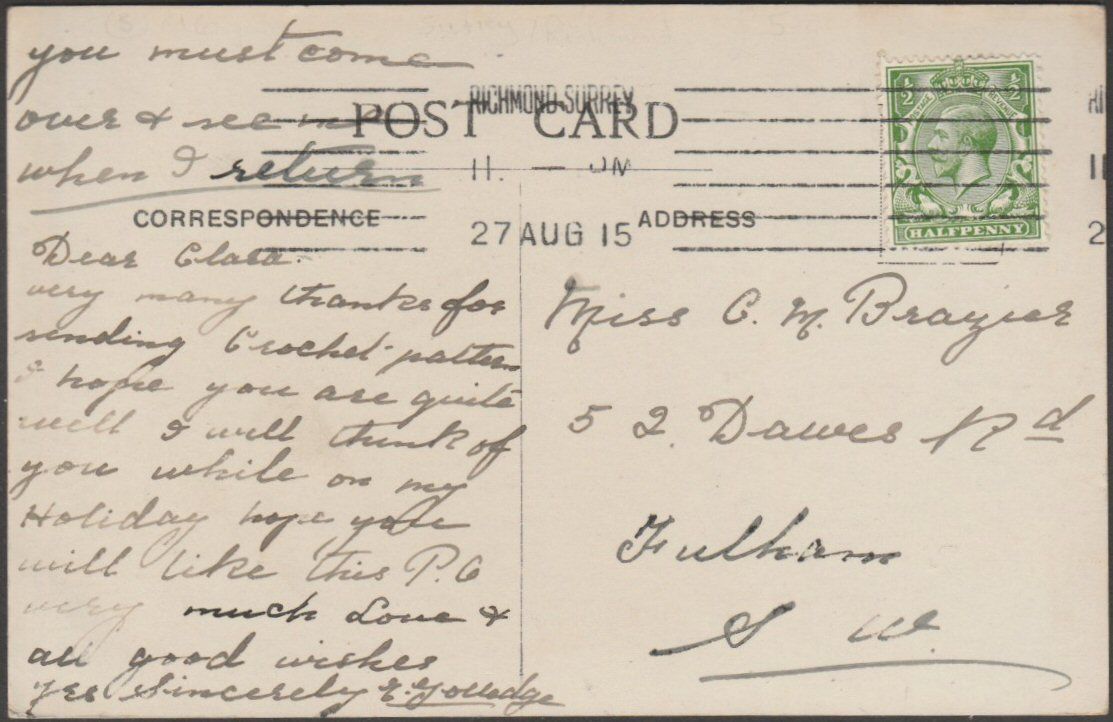 you must come
over & see me
when I return
POST CARD
RICHMOND·SURREY
11. — PM
27 AUG 15
½ ½
HALFPENNY
CORRESPONDENCE
ADDRESS
Dear Clara.
very many thanks for
sending Crochet-pattern
I hope you are quite
well I will think of
you while on my
Holiday hope you
will like this P.C
very much Love &
all good wishes
Yrs Sincerely E.
Miss C. M. Brazier
52. Dawes Rd
Fulham
S W.